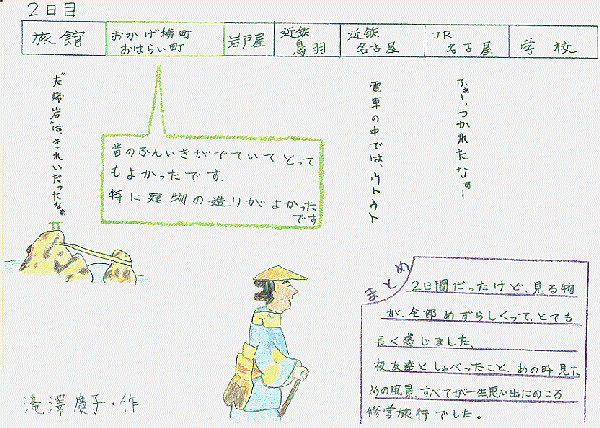 2日目
旅館
おかげ横町
おはらい町
岩戸屋
近鉄
鳥羽
近鉄
名古屋
JR
名古屋
学校
夫婦岩はきれいだったなぁ
昔のふんいきがでていてとって
もよかったです。
特に建物の造りがよかった
です
なぁー、つかれたなぁー
電車の中では、ウトウト
まとめ
2日間だったけど、見る物
が、全部めずらしくって、とても
長く感じました。
夜友達としゃべったこと、あの時見た
あの風景、すべてが一生思い出にのこる
修学旅行でした。
滝澤 子・作